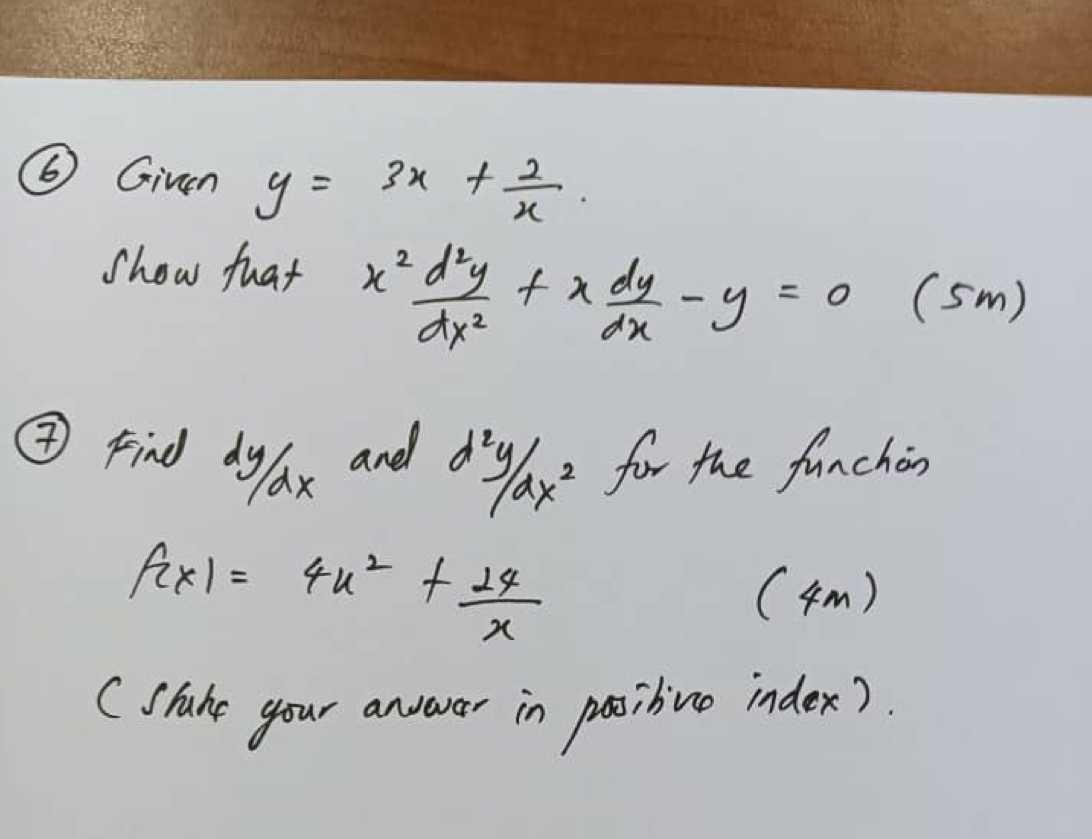 ⑥ Given y = 3x + 2/x.
Show that x² d²y/dx² + x dy/dx - y = 0 (5m)
⑦ Find dy/dx and d²y/dx² for the function
f(x) = 4x² + 24/x (4m)
(State your answer in positive index).